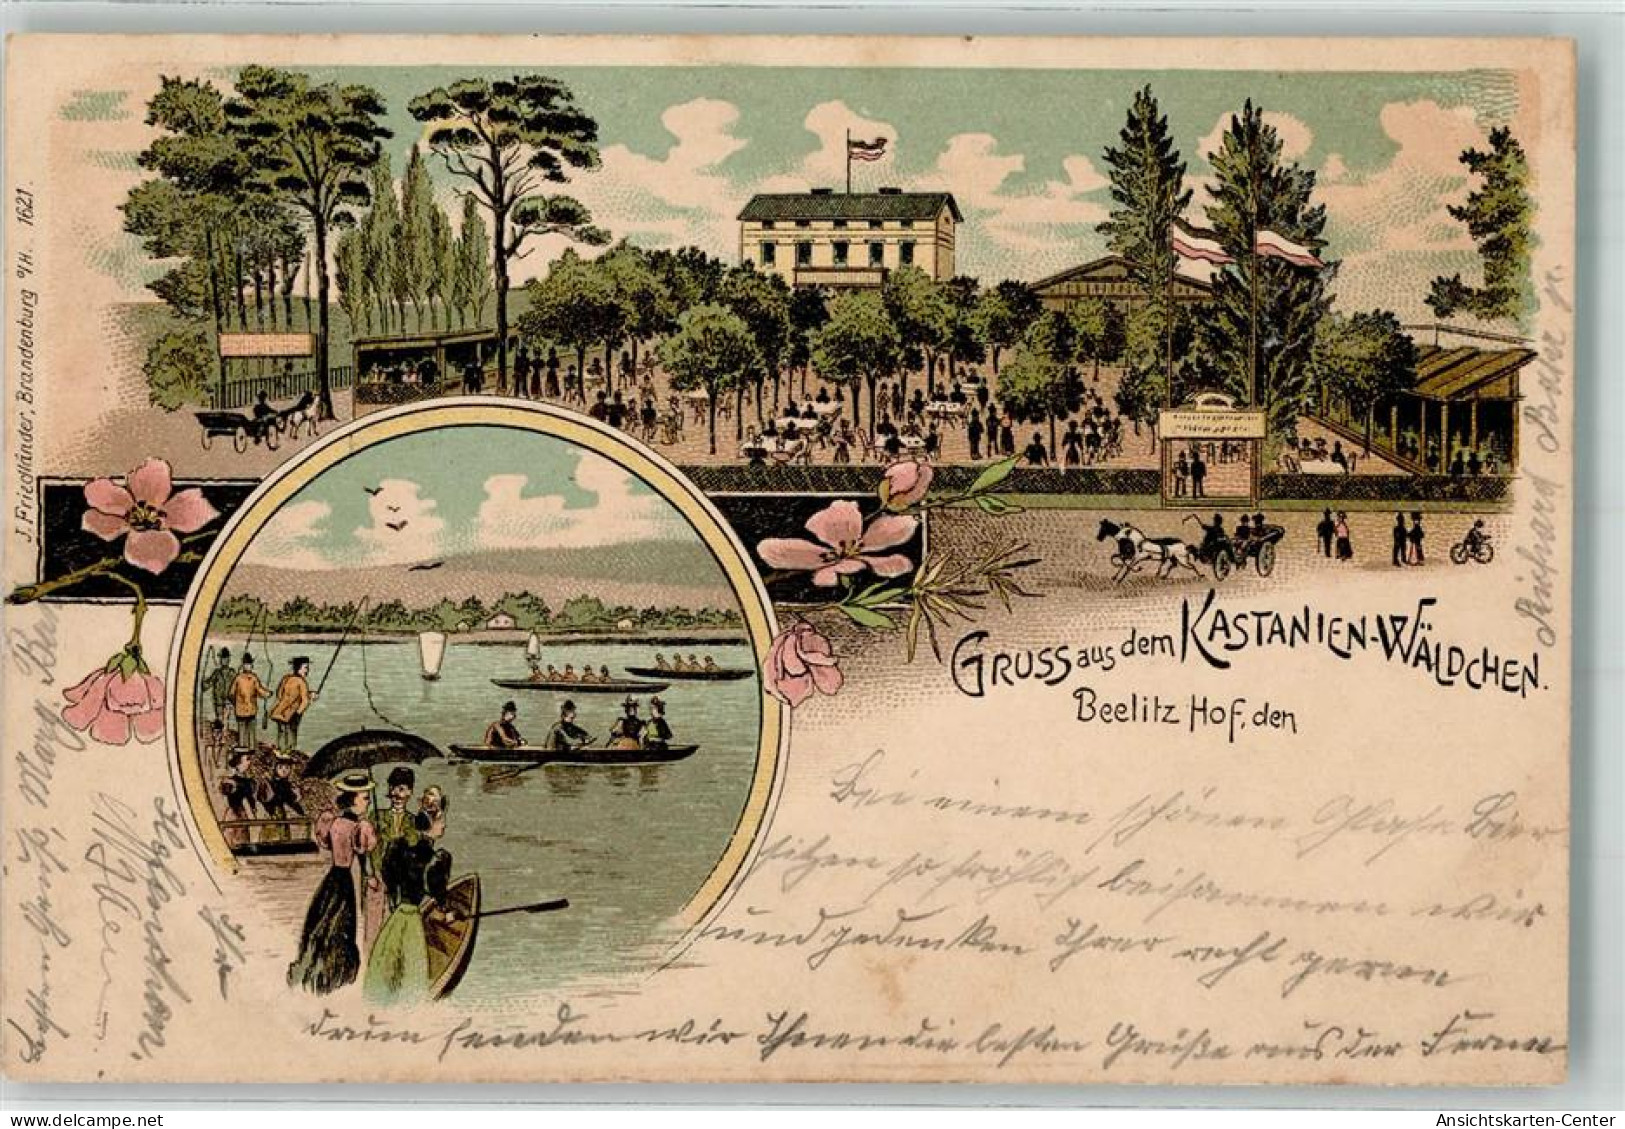 J. Friedländer, Brandenburg a/H. 1621.
GRUSS aus dem KASTANIEN-WÄLDCHEN.
Beelitz Hof, den
Bei einem schönen Glase Bier
sitzen so fröhlich beisammen wir
und gedenken Ihrer recht gern
drum senden wir Ihnen die besten Grüße aus der Ferne
Besten Gruß, Marg.
Richard
Ansichtskarten-Center